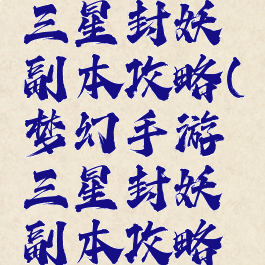 三星封妖
副本攻略(
梦幻手游
三星封妖
副本攻略